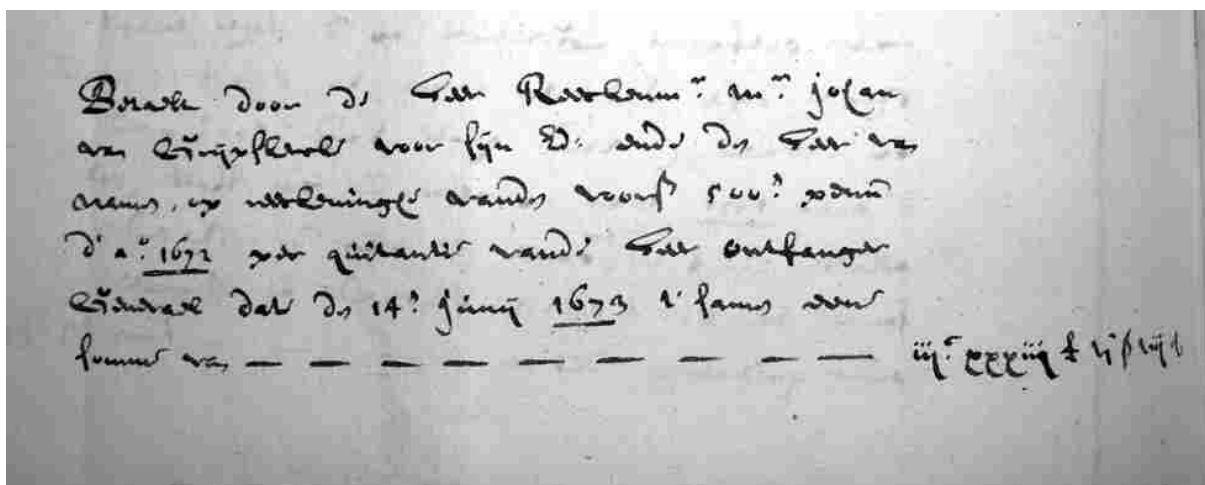 Betaelt door de heer Reeckenm.r m.r johan
van Gruijsskerck voor sijn Ed: ende de heer van
op reeckeninge vande voors 500.e penn
d' a.o 1672 per quitantie vande heer ontfanger
Generael dat de 14.e Junij 1673 t' samen een
somme van — — — — — — — — — iij.c xxxiij £ vj ß viij d